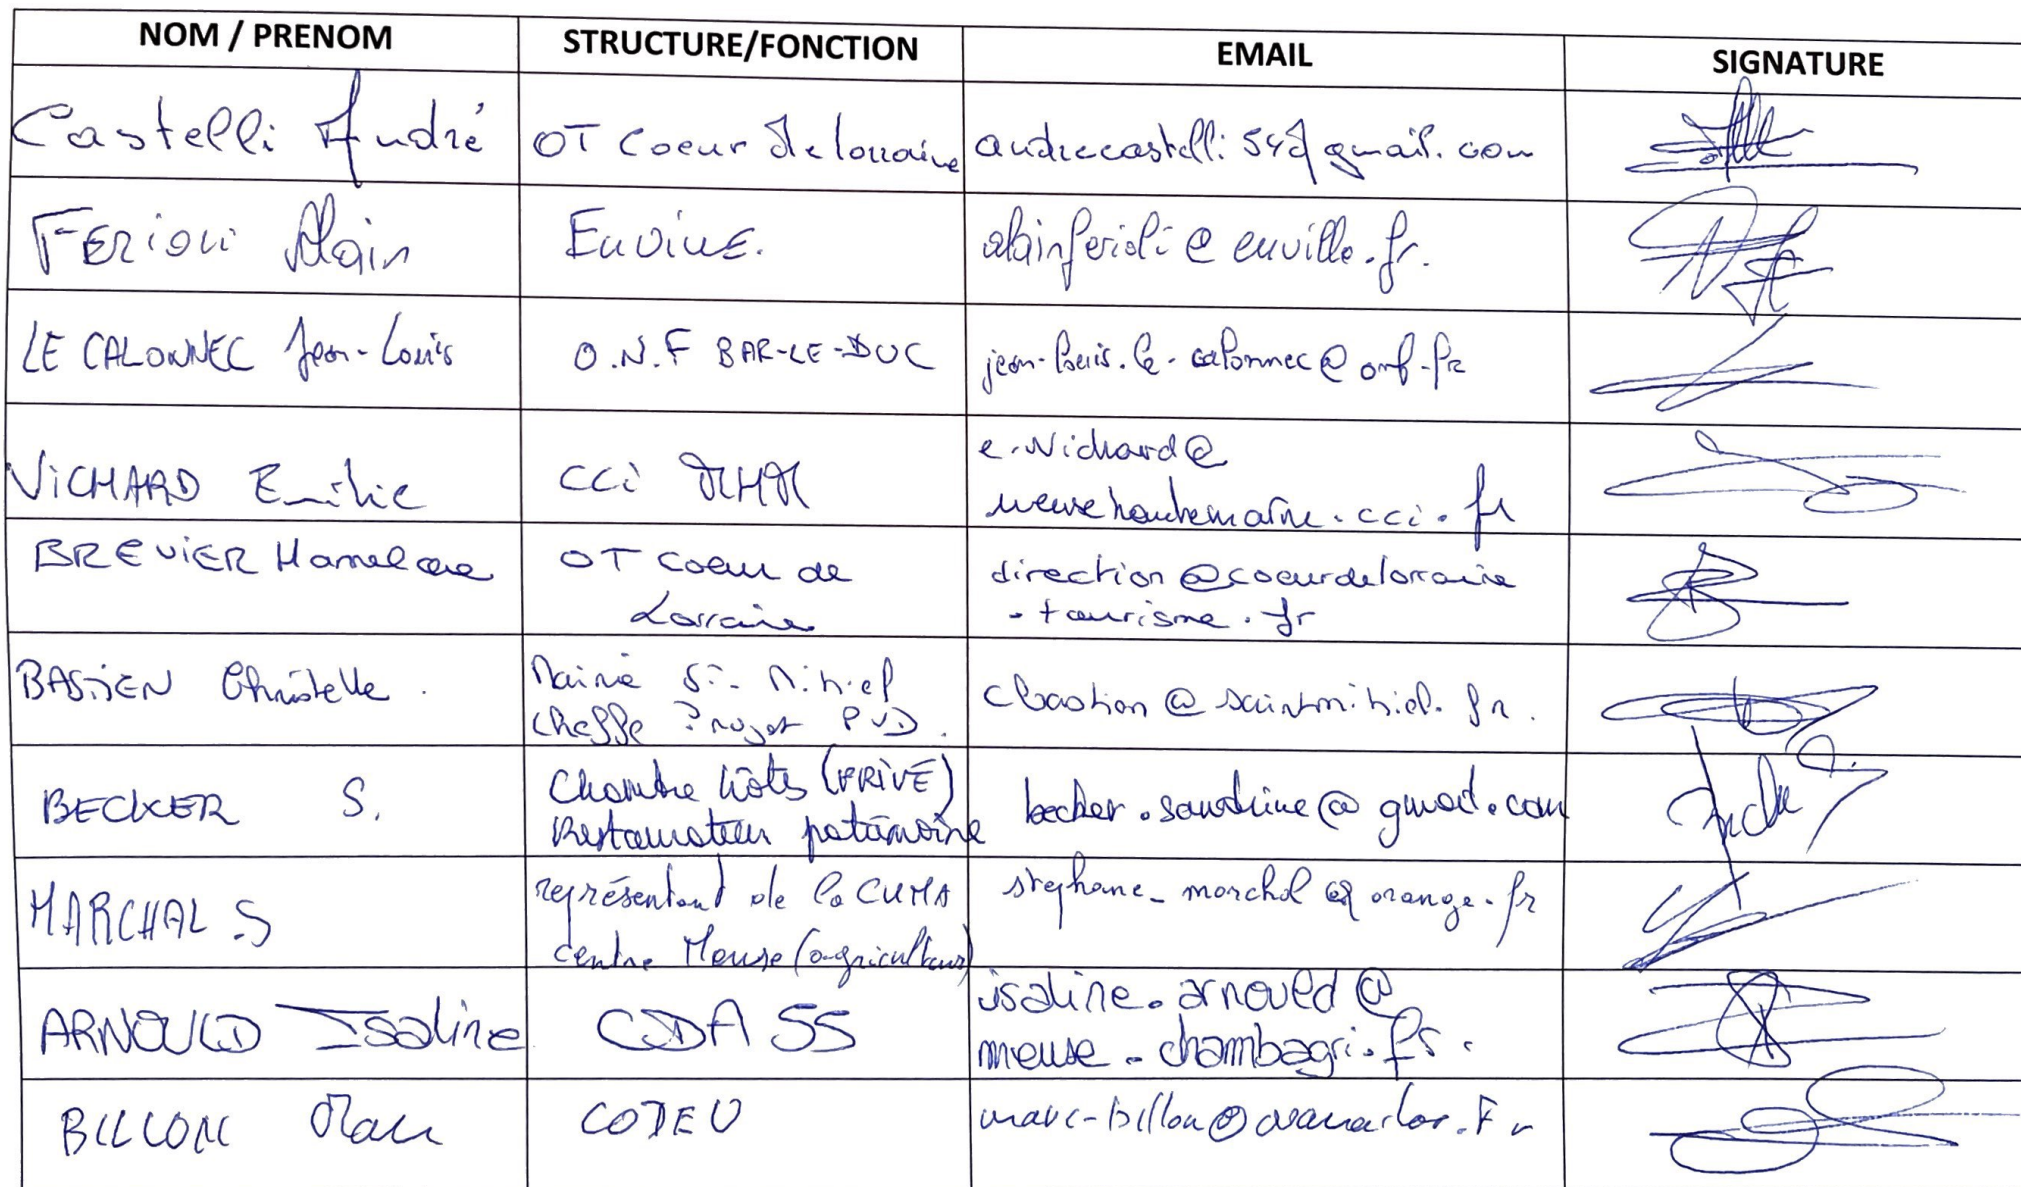 NOM / PRENOM STRUCTURE/FONCTION EMAIL SIGNATURE
Castelli André OT Coeur de lorraine andrecastelli54@gmail.com
FERIOLI Alain EUVILLE. alainferioli@euville.fr.
LE CALONNEC Jean-Louis O.N.F BAR-LE-DUC jean-louis.le-calonnec@onf.fr
VICHARD Emilie CCi MHM e.vichard@
meusehautemarne.cci.fr
BREVIER OT Coeur de
Lorraine
direction@coeurdelorraine
-tourisme.fr
BASTIEN Christelle. Mairie St-Mihiel
Cheffe Projet PVD.
cbastien@saintmihiel.fr.
BECKER S. Chambre hôtes (PRIVÉ)
Restaurateur patrimoine
becker.sandrine@gmail.com
MARCHAL S représentant de la CUMA
Centre Meuse (agriculteur)
stephane-marchal@orange.fr
ARNOULD Isaline CDA 55 isaline.arnould@
meuse.chambagri.fr.
BILLON Marc CODEV marc-billon@